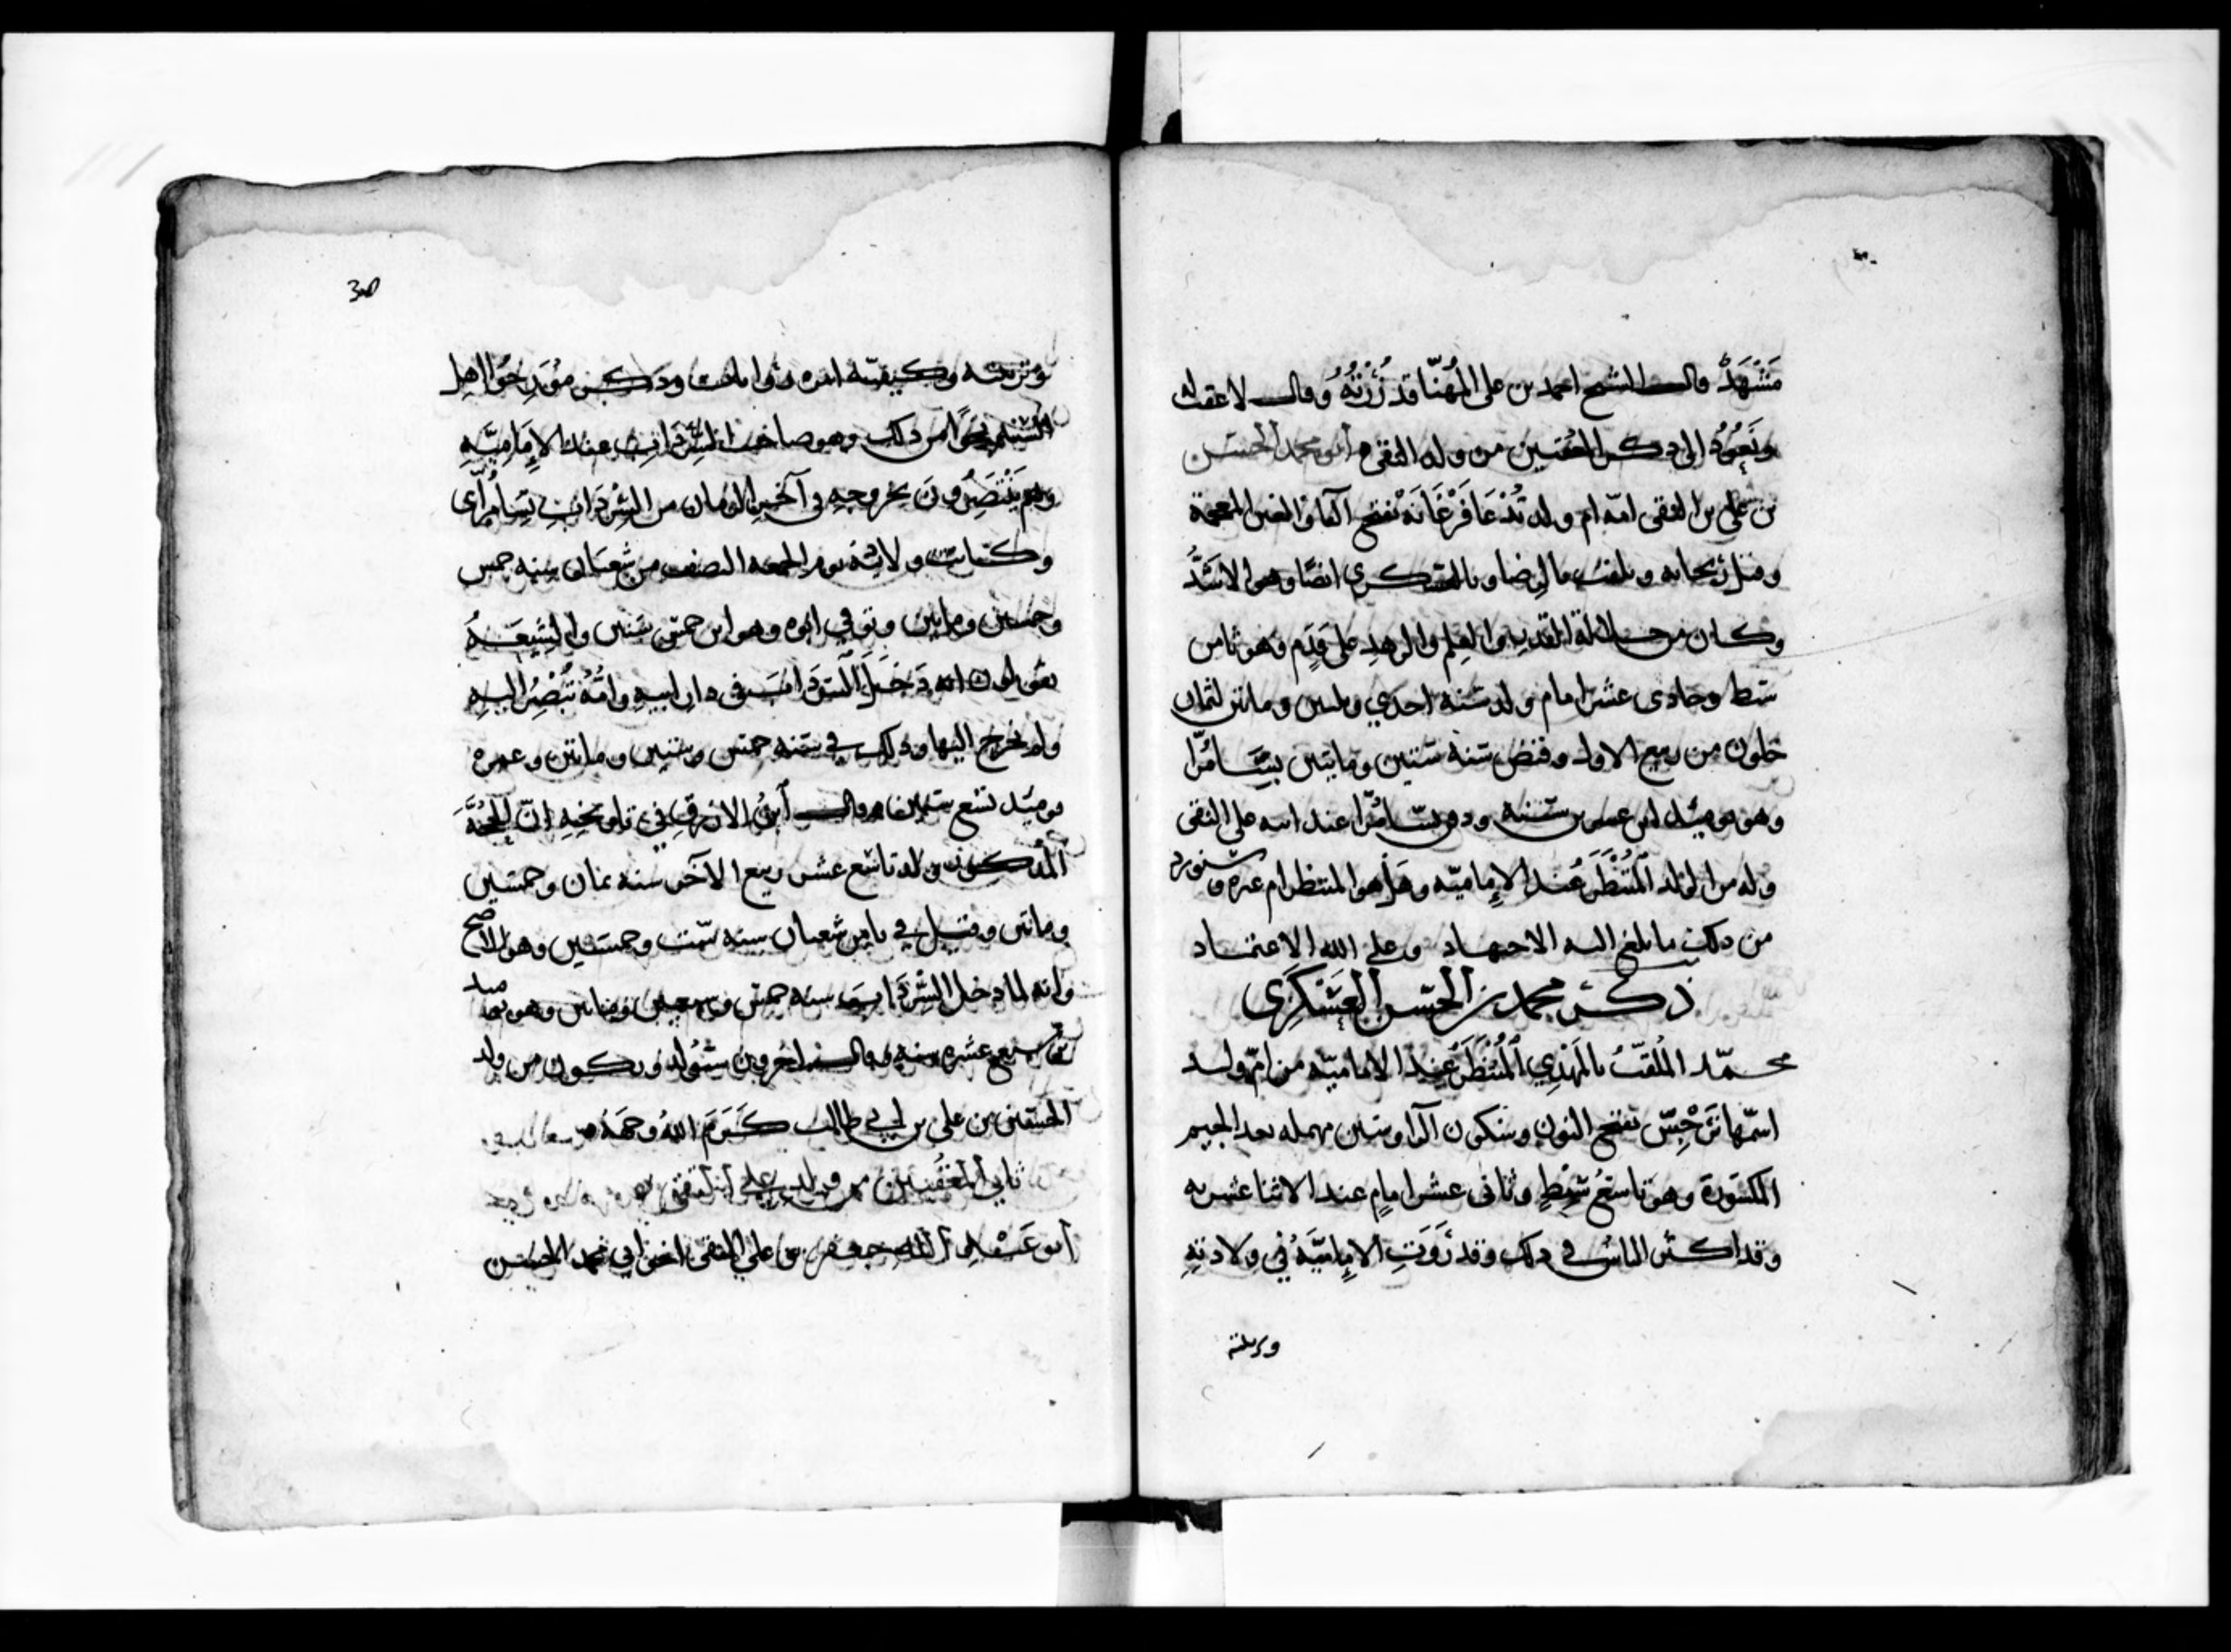 مَشْهَدٌ قال الشيخ احمد بن علي المُهَنّا قد زُرْتُهُ وقال لا عقب له
ونَعُودُ الى ذكر المعقبين من ولد التقي ابو محمد الحسن
بن علي بن التقي امه ام ولد تُدعا فَرْغَانَه بفتح الفا والغين المعجمة
وقيل ريحانه ويلقب بالرضا وبالعسكري ايضا وهو الاشَدُّ
وكان من جلالة القدر والعلم والزهد على قدم وهو ثامن
سبط وحادى عشر امام ولد سنة احدي وثلثين وماتين لثمان
خلون من ربيع الاول وقبض سنة ستين وماتين بِسَامُرّا
وهو يوميذ ابن عشرين سنة ودفن بسامُرّا عند ابيه علي النقي
وله من الولد المُنْتَظَر عند الإمامية وهل هو المنتظر ام غيره وسنورد
من ذلك ما بلغ اليه الاجتهاد وعلى الله الاعتماد
ذكر محمد بن الحسن العسكري
محمّد المُلَقَّبُ بالمَهْدِي المُنْتَظَر عند الامامية من امّ ولد
اسمها نَرْجِسْ بفتح النون وسكون الرا وسين مهمله بعد الجيم
المكسورة وهو تاسعُ سِبْطٍ وثانى عشر امامٍ عند الاثنا عشريه
وقد اكثر الناسُ في ذلك وقد رَوَتِ الإماميَّةُ في ولادتِهِ
وتربيته
30
وتربيته وكيفيّة امره وذكر نحوا
نحوًا من ذلك وهو صاحب السِّرْدَاب عند الإمَامِيَّه
وهم يَنْتَظِرُونَ بخروجِهِ في آخرِ الزمان من السِّرْدَاب بِسَامُرّاى
وكانت ولادته يوم الجمعه النصف من شعبان سنه خمس
وخمسين وماتين وتوفي ابوه وهو ابن خمس سنين والشِيعَةُ
يقولون انه دَخَلَ السَرْدَابَ في دار ابيهِ وامُّهُ تَنْظُرُ اليهِ
ولم يخرج اليها وذلك في سنه خمس وستين وماتين وعمره
يوميذ تسع سنين وقال ابن الازرق في تاريخهِ انّ الحُجَّةَ
المذكور ولد تاسع عشر ربيع الآخر سنه ثمان وخمسين
وماتين وقيل في ثامن شعبان سنه ستّ وخمسين وهو الاصح
وانه لما دخل السِّرْدَاب سنه خمس وسبعين وماتين وهو يوميذ
سبع عشره سنه وقال اخرون سَيُولد ويكون من ولد
الحسين بن علي بن ابي طالب كَرَّمَ اللهُ وجهه
ثاني المُعَقِّبين من ولد علي النقي
ابو عَبْدِ الله جعفر بن علي النقي اخو ابي محمد الحسن